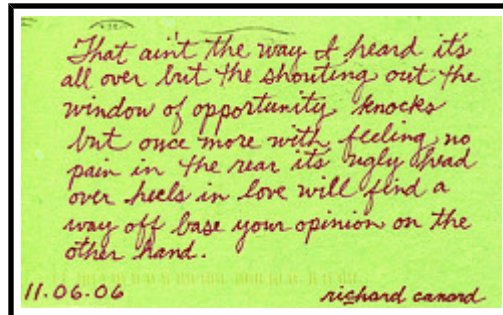 That ain't the way I heard it's
all over but the shouting out the
window of opportunity knocks
but once more with feeling no
pain in the rear its ugly head
over heels in love will find a
way off base your opinion on the
other hand.
11.06.06
richard canard